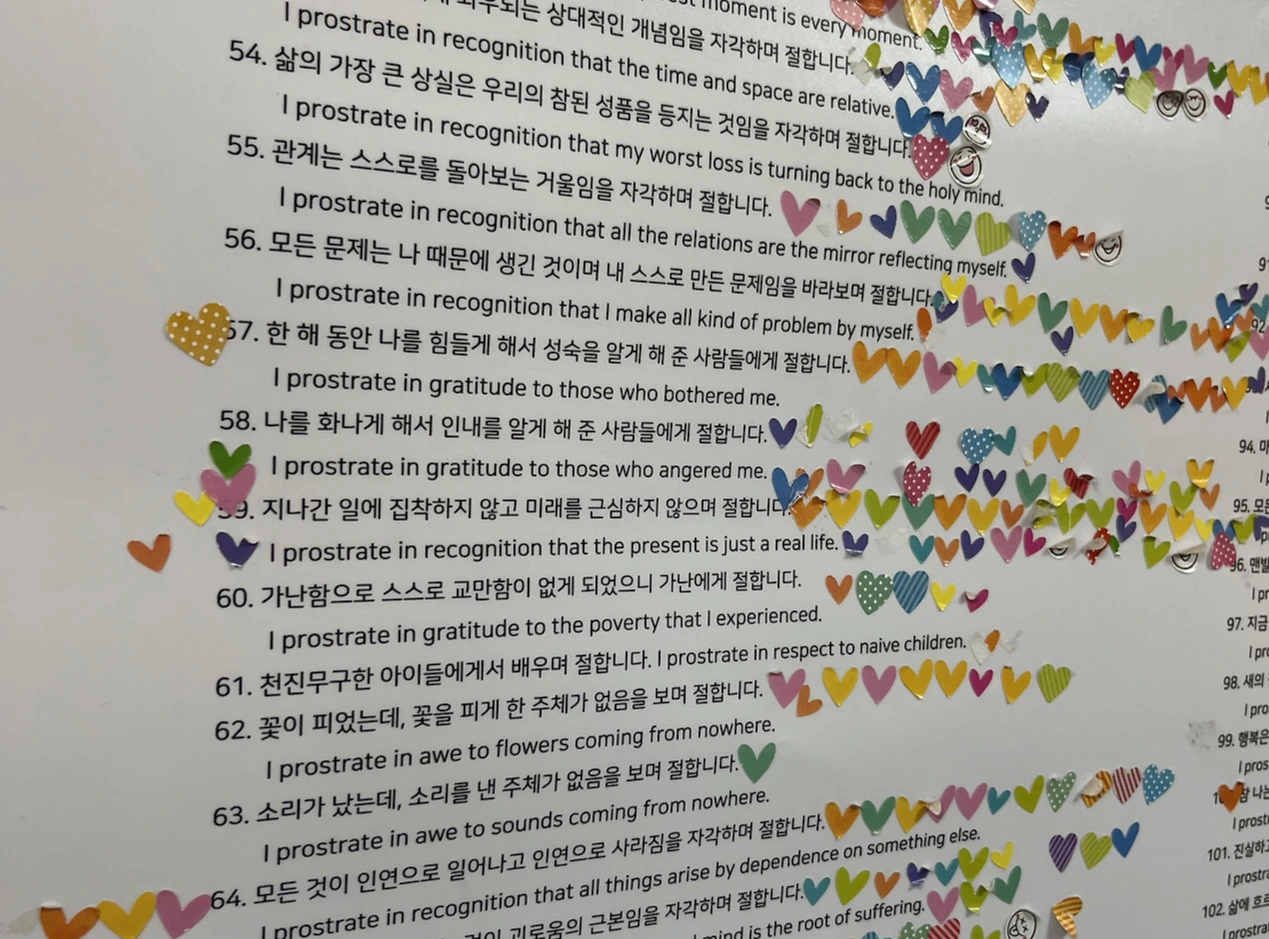 moment is every moment.
되는 상대적인 개념임을 자각하며 절합니다.
I prostrate in recognition that the time and space are relative.
54. 삶의 가장 큰 상실은 우리의 참된 성품을 등지는 것임을 자각하며 절합니다.
I prostrate in recognition that my worst loss is turning back to the holy mind.
55. 관계는 스스로를 돌아보는 거울임을 자각하며 절합니다.
I prostrate in recognition that all the relations are the mirror reflecting myself.
56. 모든 문제는 나 때문에 생긴 것이며 내 스스로 만든 문제임을 바라보며 절합니다.
I prostrate in recognition that I make all kind of problem by myself.
57. 한 해 동안 나를 힘들게 해서 성숙을 알게 해 준 사람들에게 절합니다.
I prostrate in gratitude to those who bothered me.
58. 나를 화나게 해서 인내를 알게 해 준 사람들에게 절합니다.
I prostrate in gratitude to those who angered me.
59. 지나간 일에 집착하지 않고 미래를 근심하지 않으며 절합니다.
I prostrate in recognition that the present is just a real life.
60. 가난함으로 스스로 교만함이 없게 되었으니 가난에게 절합니다.
I prostrate in gratitude to the poverty that I experienced.
61. 천진무구한 아이들에게서 배우며 절합니다. I prostrate in respect to naive children.
62. 꽃이 피었는데, 꽃을 피게 한 주체가 없음을 보며 절합니다.
I prostrate in awe to flowers coming from nowhere.
63. 소리가 났는데, 소리를 낸 주체가 없음을 보며 절합니다.
I prostrate in awe to sounds coming from nowhere.
64. 모든 것이 인연으로 일어나고 인연으로 사라짐을 자각하며 절합니다.
I prostrate in recognition that all things arise by dependence on something else.
것이 괴로움의 근본임을 자각하며 절합니다.
mind is the root of suffering.
91
92
94. 마
95. 모든
96. 맨발
I pr
97. 지금
I pro
98. 새의
I pro
99. 행복은
I pros
나는
I prost
101. 진실하고
I prostra
102. 삶에 흐르
I prostra